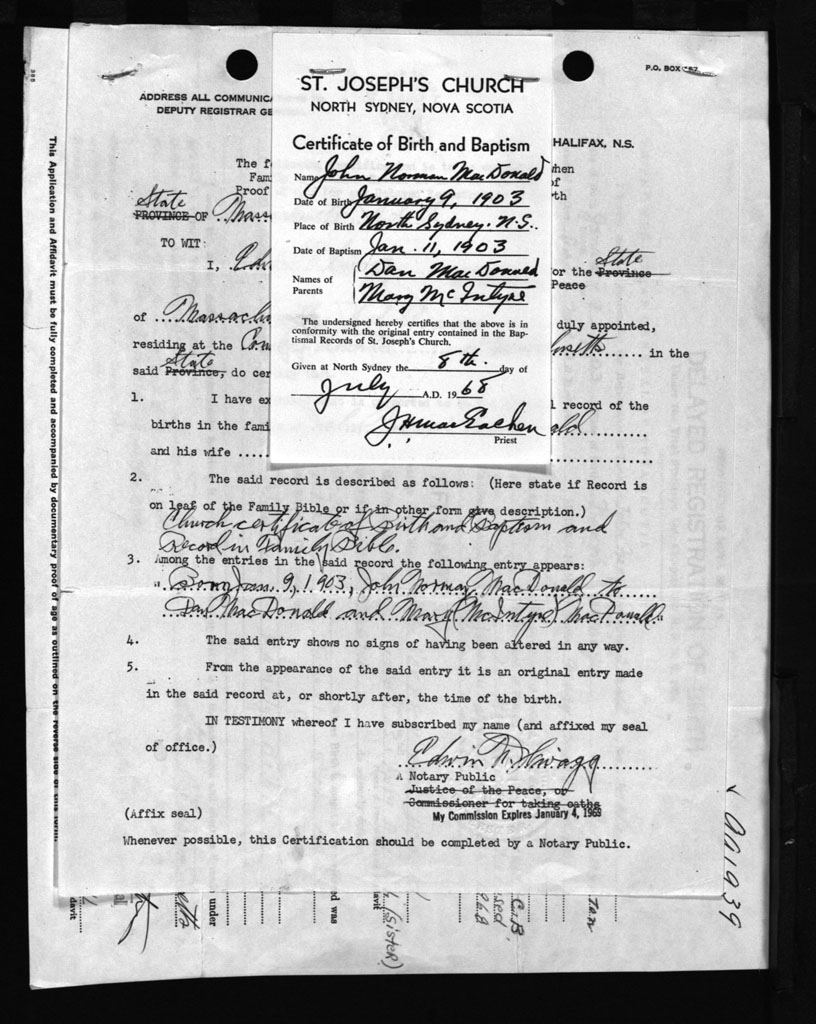 P.O. BOX
ST. JOSEPH'S CHURCH
NORTH SYDNEY, NOVA SCOTIA
Certificate of Birth and Baptism
Name John Norman MacDonald
Date of Birth January 9, 1903
Place of Birth North Sydney. N.S.
Date of Baptism Jan. 11, 1903
Names of Parents Dan MacDonald
Mary McIntyre
The undersigned hereby certifies that the above is in
conformity with the original entry contained in the Bap-
tismal Records of St. Joseph's Church.
Given at North Sydney the 8th. day of
July A.D. 1968
Priest
ADDRESS ALL COMMUNICA
DEPUTY REGISTRAR GE
HALIFAX, N.S.
The f
Fam
Proof
State
PROVINCE OF Mass
TO WIT:
I,
or the State Province
Peace
of Massach duly appointed,
residing at the setts in the
said State Province, do cer
1. I have ex l record of the
births in the fami ald
and his wife
2. The said record is described as follows: (Here state if Record is
on leaf of the Family Bible or if in other form give description.)
Church certificate of birth and baptism and
Record in Family Bible.
3. Among the entries in the said record the following entry appears:
" Born Jan. 9, 1903, John Norman MacDonald to
Dan MacDonald and Mary (McIntyre) MacDonald."
4. The said entry shows no signs of having been altered in any way.
5. From the appearance of the said entry it is an original entry made
in the said record at, or shortly after, the time of the birth.
IN TESTIMONY whereof I have subscribed my name (and affixed my seal
of office.)
Edwin
A Notary Public
Justice of the Peace, or
Commissioner for taking oaths
My Commission Expires January 4, 1969
(Affix seal)
Whenever possible, this Certification should be completed by a Notary Public.
This Application and Affidavit must be fully completed and accompanied by documentary proof of age as outlined on the reverse side of
davit
al
etts
under
ed was
davit
(Sister)